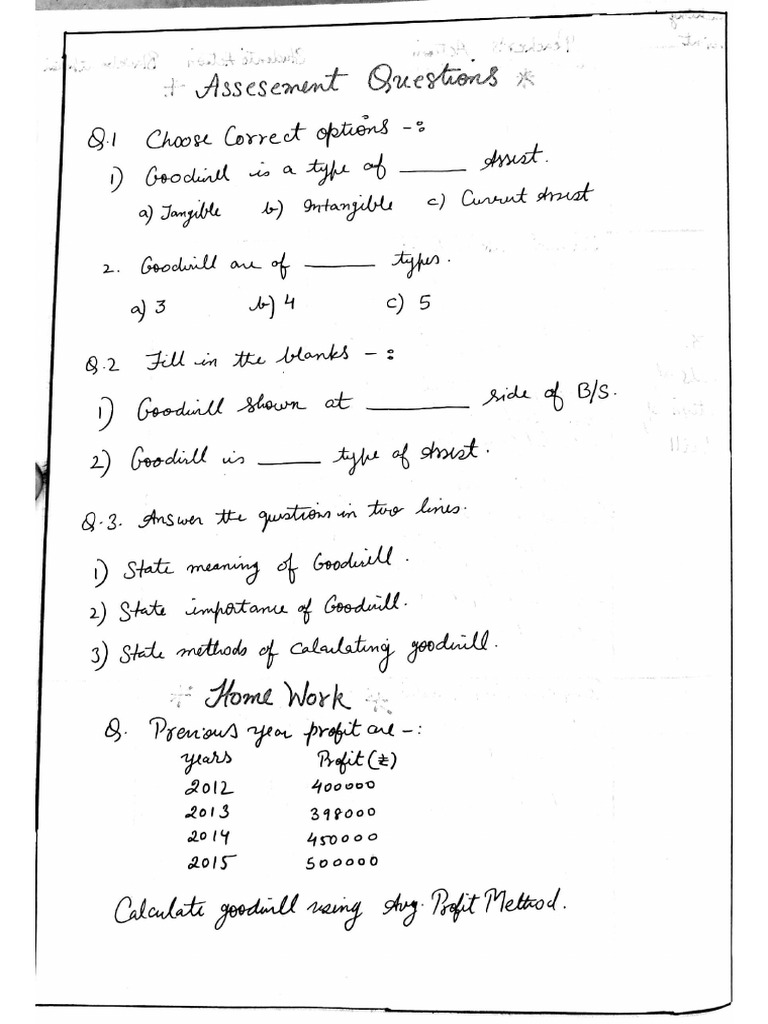 Assesement Questions
Q.1 Choose Correct options -:
1) Goodwill is a type of ______ Assist.
a) Tangible b) Intangible c) Current Assist
2. Goodwill are of ______ types.
a) 3 b) 4 c) 5
Q.2 Fill in the blanks -:
1) Goodwill shown at ______ side of B/S.
2) Goodwill is ______ type of Assist.
Q.3. Answer the questions in two lines.
1) State meaning of Goodwill.
2) State importance of Goodwill.
3) State methods of calculating goodwill.
Home Work
Q. Previous year profit are -:
years Profit (₹)
2012 400000
2013 398000
2014 450000
2015 500000
Calculate goodwill using Avg. Profit Method.